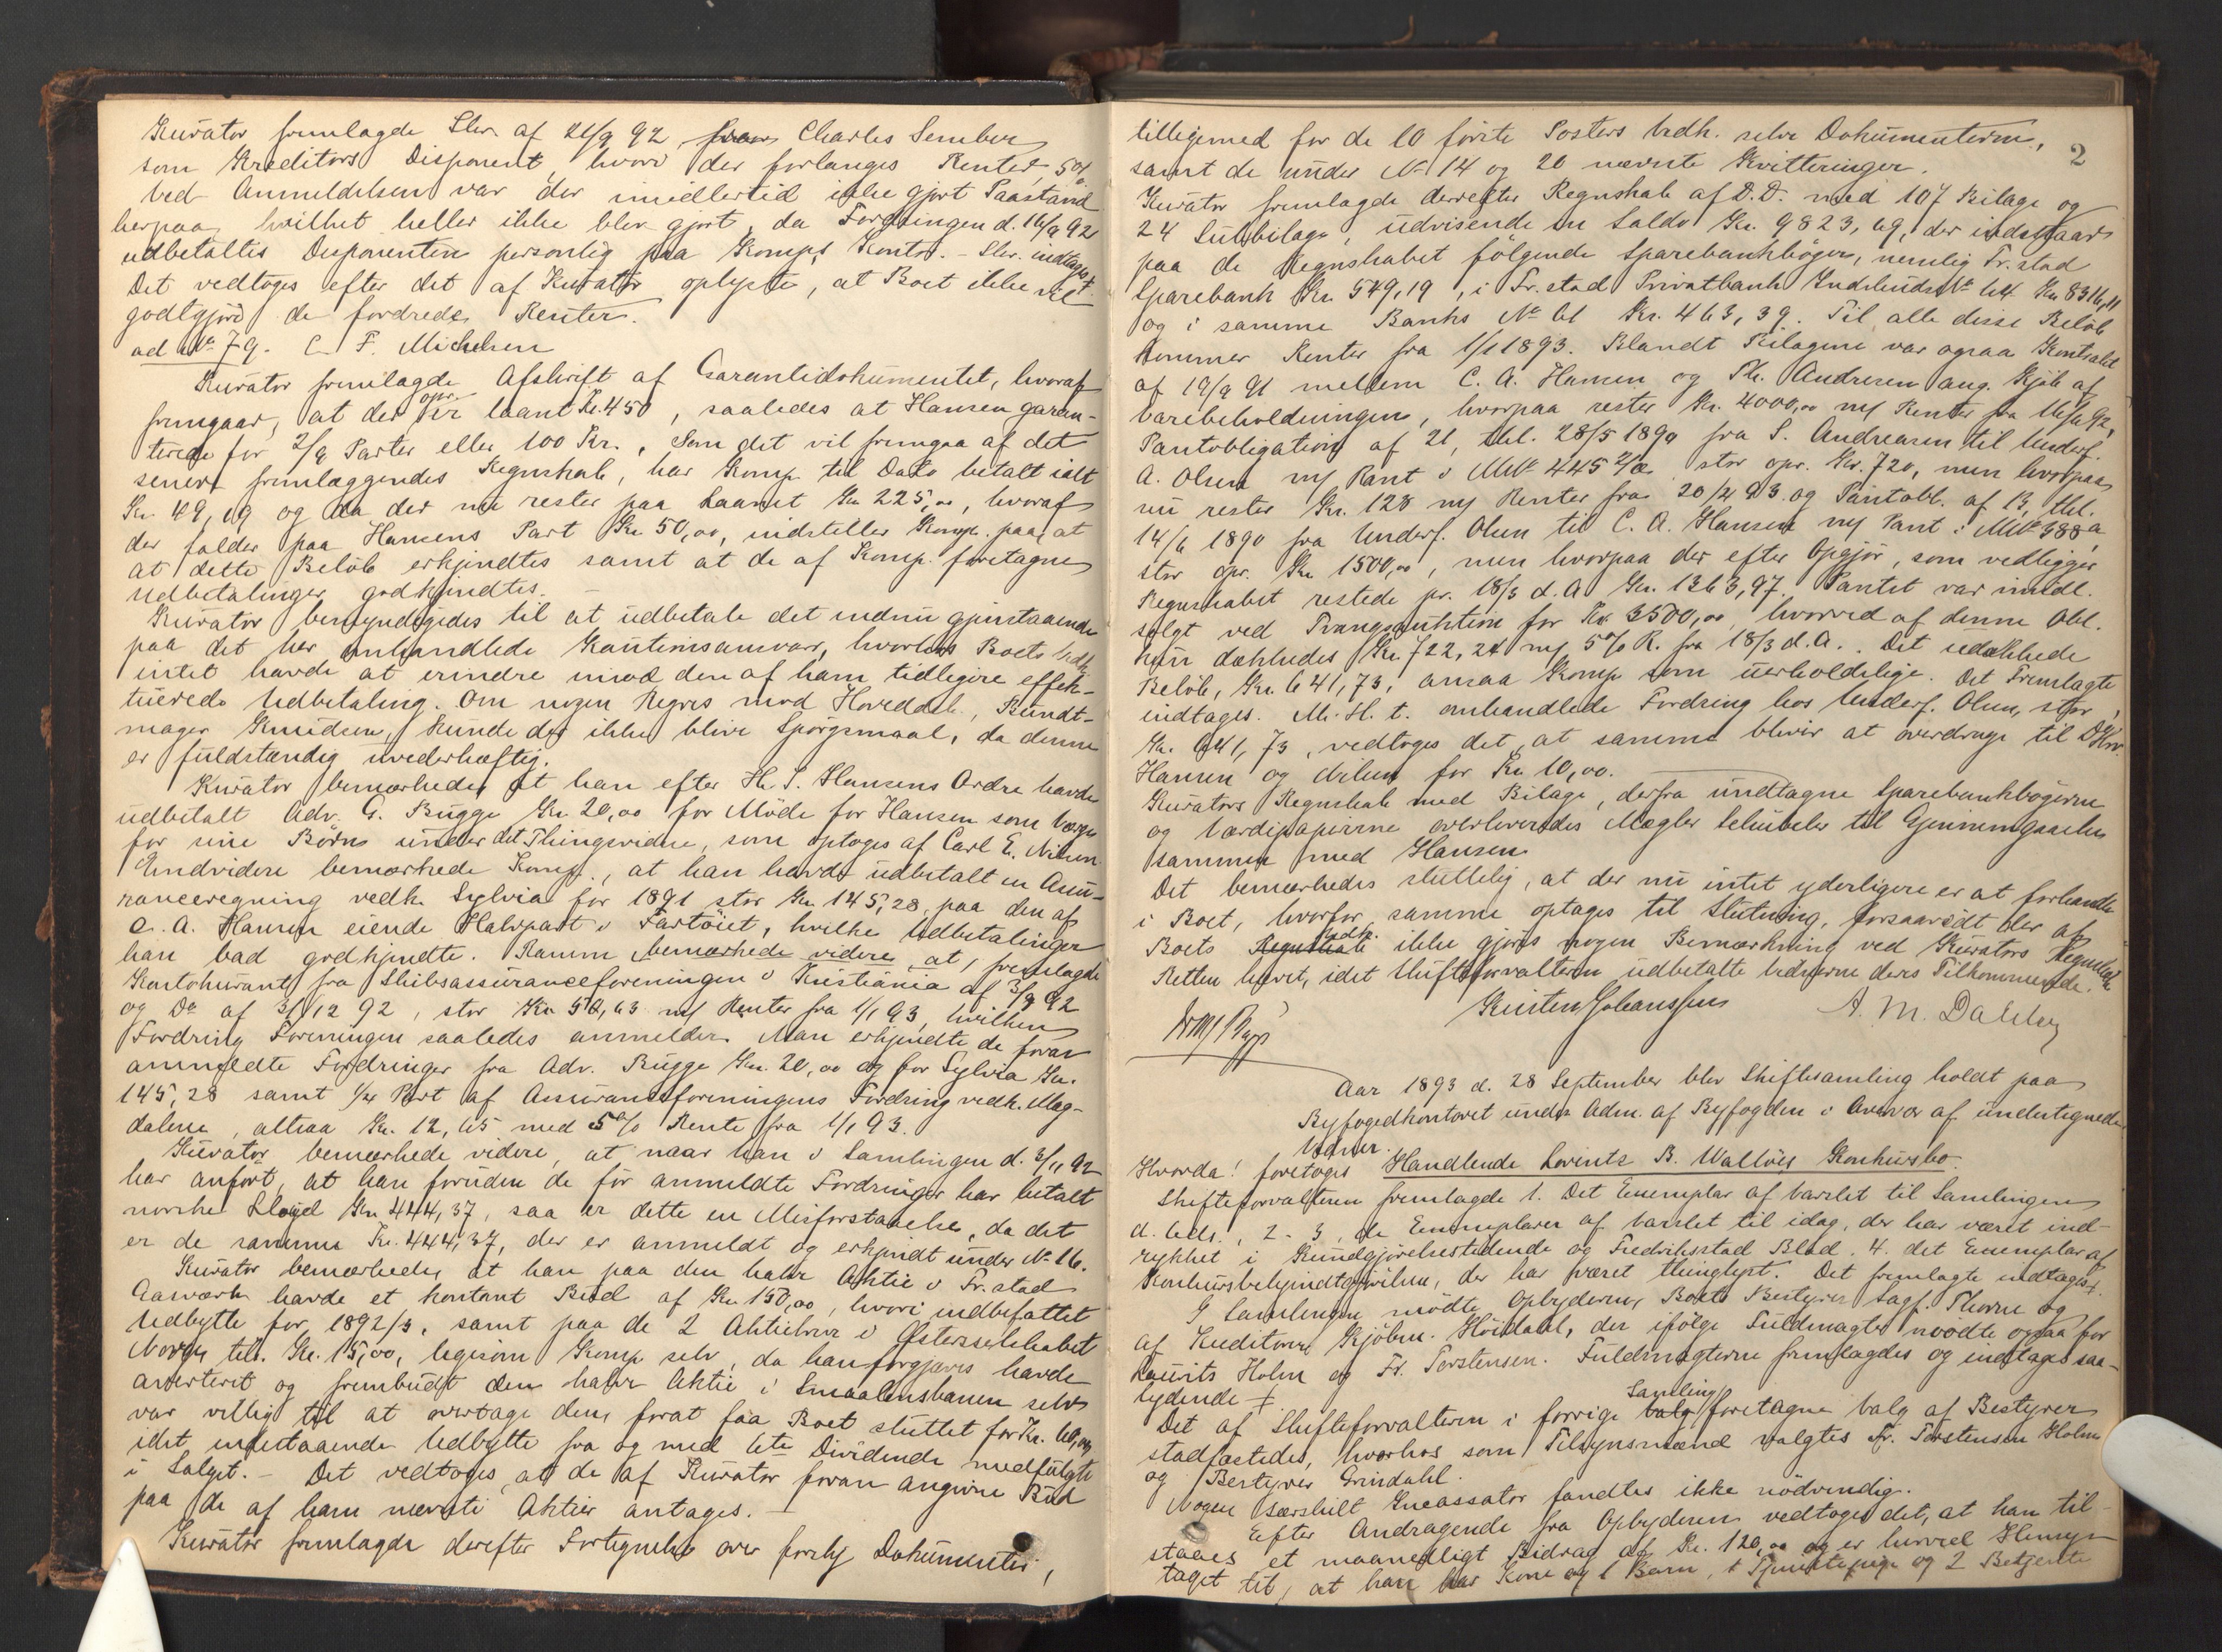 Kurator fremlagde Skr. af 21/9 92 fra Charles Sember
som Kreditors Disponent, hvori der forlanges Renter 5%
ved Anmeldelsen var der imidlertid ikke gjort Paastand
herpaa, hvilket heller ikke blev gjort, da Fordringen d. 16/9 92
udbetaltes Disponenten personlig paa Komps Kontor. - Skr. indtages
Det vedtoges efter det af Kurator oplyste, at Boet ikke
godtgjør de fordrede Renter.
ad No 79. C F. Michelsen
Kurator fremlagde Afskrift af Garantidokumentet, hvoraf
fremgaar, at der opr. er laant Kr. 450, saaledes at Hansen garan-
terede for 2/9 Parter eller 100 Kr., Som det vil fremgaa af det
senere fremlæggendes Regnskab, har Komp. til Dato betalt ialt
Kr. 49,19 og da der nu rester paa Laanet Kr 225,00, hvoraf
der falder paa Hansens Part Kr 50,00, indstiller Komp. paa, at
at dette Beløb erkjendtes samt at de af Komp. foretagne
Udbetalinger godkjendtes. -
Kurator bemyndigedes til at udbetale det endnu gjenstaaende
paa det her omhandlede Kautionsansvar, hvorhos Boets Vedk.
intet havde at erindre imod den af ham tidligere effek-
tuerede Udbetaling. Om nogen Regres mod Hoveddeb., Bundt-
mager Knudsen, kunde der ikke blive Spørgsmaal, da denne
er fuldstændig uvederhæftig.
Kurator bemærkede, at han efter H. S. Hansens Ordre havde
udbetalt Adv. G. Bugge Kr. 20,00 for Møde for Hansen som Værge
for sine Børn under det Thingsvidne, som optoges af Carl E. Nilsen
Endvidere bemærkede Komp., at han havde udbetalt en Assu-
ranceregning vedk. Sylvia for 1891 stor Kr 145,28, paa den af
C. A. Hansen eiende Halvpart i Fartøiet, hvilke Udbetalinger
han bad godkjendte. Samme bemærkede videre, at, fremlagde
Kontokurant fra Skibsassuranceforeningen i Kristiania af 3/9 92
og Do af 31/12 92, stor Kr. 50,63 m/ Renter fra 1/1 93, hvilken
Fordring Foreningen saaledes anmelder. Man erkjendte de foran
anmeldte Fordringer fra Adv. Bugge Kr. 20,00 og for Sylvia Kr.
145,28 samt 1/4 Part af Assuranceforeningens Fordring vedk. Mag-
dalene, altsaa Kr. 12,65 med 5% Rente fra 1/1 93.
Kurator bemærkede videre, at naar han i Samlingen d. 3/11 92
har anført, at han foruden de før anmeldte Fordringer har betalt
norske Lloyd Kr 444,37, saa er dette en Misforstaaelse, da det
er de samme Kr. 444,37, der er anmeldt og erkjendt under No 16.
Kurator bemærkede, at han paa den halve Aktie i Fr.stad
Gasværk havde et kontant Bud af Kr. 150,00, hvori indbefattet
Udbytte for 1892/3, samt paa de 2 Aktiebreve i Østersselskabet
Norge til Kr. 15,00, ligesom Komp selv, da han forgjæves havde
averteret og frembudt den halve Aktie i Smaalensbanen selv
var villig til at overtage den, forat faa Boet sluttet for Kr. 60,00
idet indestaaende Udbytte fra og med 6te Dividende medfulgte
i Salget. - Det vedtoges, at de af Kurator foran angivne Bud
paa de af ham nævnte Aktier antages. -
Kurator fremlagde derefter Fortegnelse over forskj Dokumenter,
2
tilligemed for de 10 første Posters Vedk. selve Dokumenterne,
samt de under No 14 og 20 nævnte Kvitteringer.
Kurator fremlagde derefter Regnskab af D.D. med 107 Bilage og
24 Subbilage, udvisende en Saldo Kr. 9823,69, der indestaar
paa de Regnskabet følgende Sparebankbøger, nemlig Fr.stad
Sparebank Kr 549,19, i Fr.stad Privatbank Indskuds No 64 Kr 8316,11
og i samme Banks No 61 Kr. 463,39. Til alle disse Beløb
kommer Renter fra 1/1 1893. Blandt Bilagene var ogsaa Kontrakt
af 19/9 91 mellem C. A. Hansen og Th. Andresen ang. Kjøb af
Varebeholdningen, hvorpaa rester Kr. 4000,00 m/ Renter fra
Pantobligation af 21, thl. 28/5 1890 fra S. Andreasen til Underf.
A. Olsen m/ Pant i MNo 445 stor opr. Kr. 720, men hvorpaa
nu rester Kr. 128 m/ Renter fra 20/2 93 og Pantobl. af 13, thl.
14/6 1890 fra Underf. Olsen til C. A. Hansen m/ Pant i MNo 388a
stor opr. Kr 1500,00, men hvorpaa der efter Opgjør, som vedligger
Regnskabet restede pr. 18/3 d.A. Kr. 1363,97. Pantet var imidl.
solgt ved Tvangsauktion for Kr. 3500,00, hvorved af denne Obl.
kun dækkedes Kr. 722,24 m/ 5% R. fra 18/3 d.A. Det udækkede
Beløb, Kr. 641,73, ansaa Komp som uerholdelige. Det Fremlagte
indtages. M. H. t. omhandlede Fordring hos Underf. Olsen, stor
Kr. 641,73, vedtoges det, at samme bliver at overdrage til
Hansen og Nilsen for Kr. 10,00.
Kurators Regnskab med Bilage, derfra undtagne Sparebankbøgerne
og Værdipapirerne overleveredes Mægler Schübeler til Gjennemgaaelse
sammen med Hansen.
Det bemærkedes sluttelig, at der nu intet yderligere er at forhandle
i Boet, hvorfor samme optages til Slutning, forsaavidt der af
Boets Vedk. ikke gjøres nogen Bemærkning ved Kurators Regnskab
Retten hævet, idet Skifteforvalteren udbetalte Vidnerne deres Tilkommende.
Kristen Johanssen A. M. Dahlberg
Aar 1893 d. 28 September blev Skiftesamling holdt paa
Byfogedkontoret under Adm. af Byfogden i Overvær af undertegnede
Vidner.
Hvorda! foretoges Handlende Lorentz B. Walløes Konkursbo.
Skifteforvalteren fremlagde 1. Det Exemplar af Varslet til Samlingen
d. 6 ds., 2-3, de Exemplarer af Varslet til idag, der har været ind-
rykket i Kundgjørelsestidende og Fredriksstad Blad. 4. det Exemplar af
Konkursbekjendtgjørelsen, der har været thinglyst. Det fremlagte indtages.
I Samlingen mødte Opbyderen, Boets Bestyrer Sagf. Thorne og
af Kreditorer Kjøbm. Høidahl, der ifølge Fuldmagter mødte ogsaa for
Laurits Holm og Fr. Torstensen. Fuldmagterne fremlagdes og indtages saa-
lydende ⨍
Det af Skifteforvalteren i forrige Samling foretagne Valg af Bestyrer
stadfæstedes, hvorhos som Tilsynsmænd valgtes Fr. Torstensen Holm
og Bestyrer Grindahl.
Nogen særskilt Incassator fandtes ikke nødvendig.
Efter Andragende fra Opbyderen vedtoges det, at han til-
staaes et maanedligt Bidrag af Kr. 120,00 og er herved Hensyn
taget til, at han har Kone og 1 Barn, 1 Tjenestepige og 2 Betjente